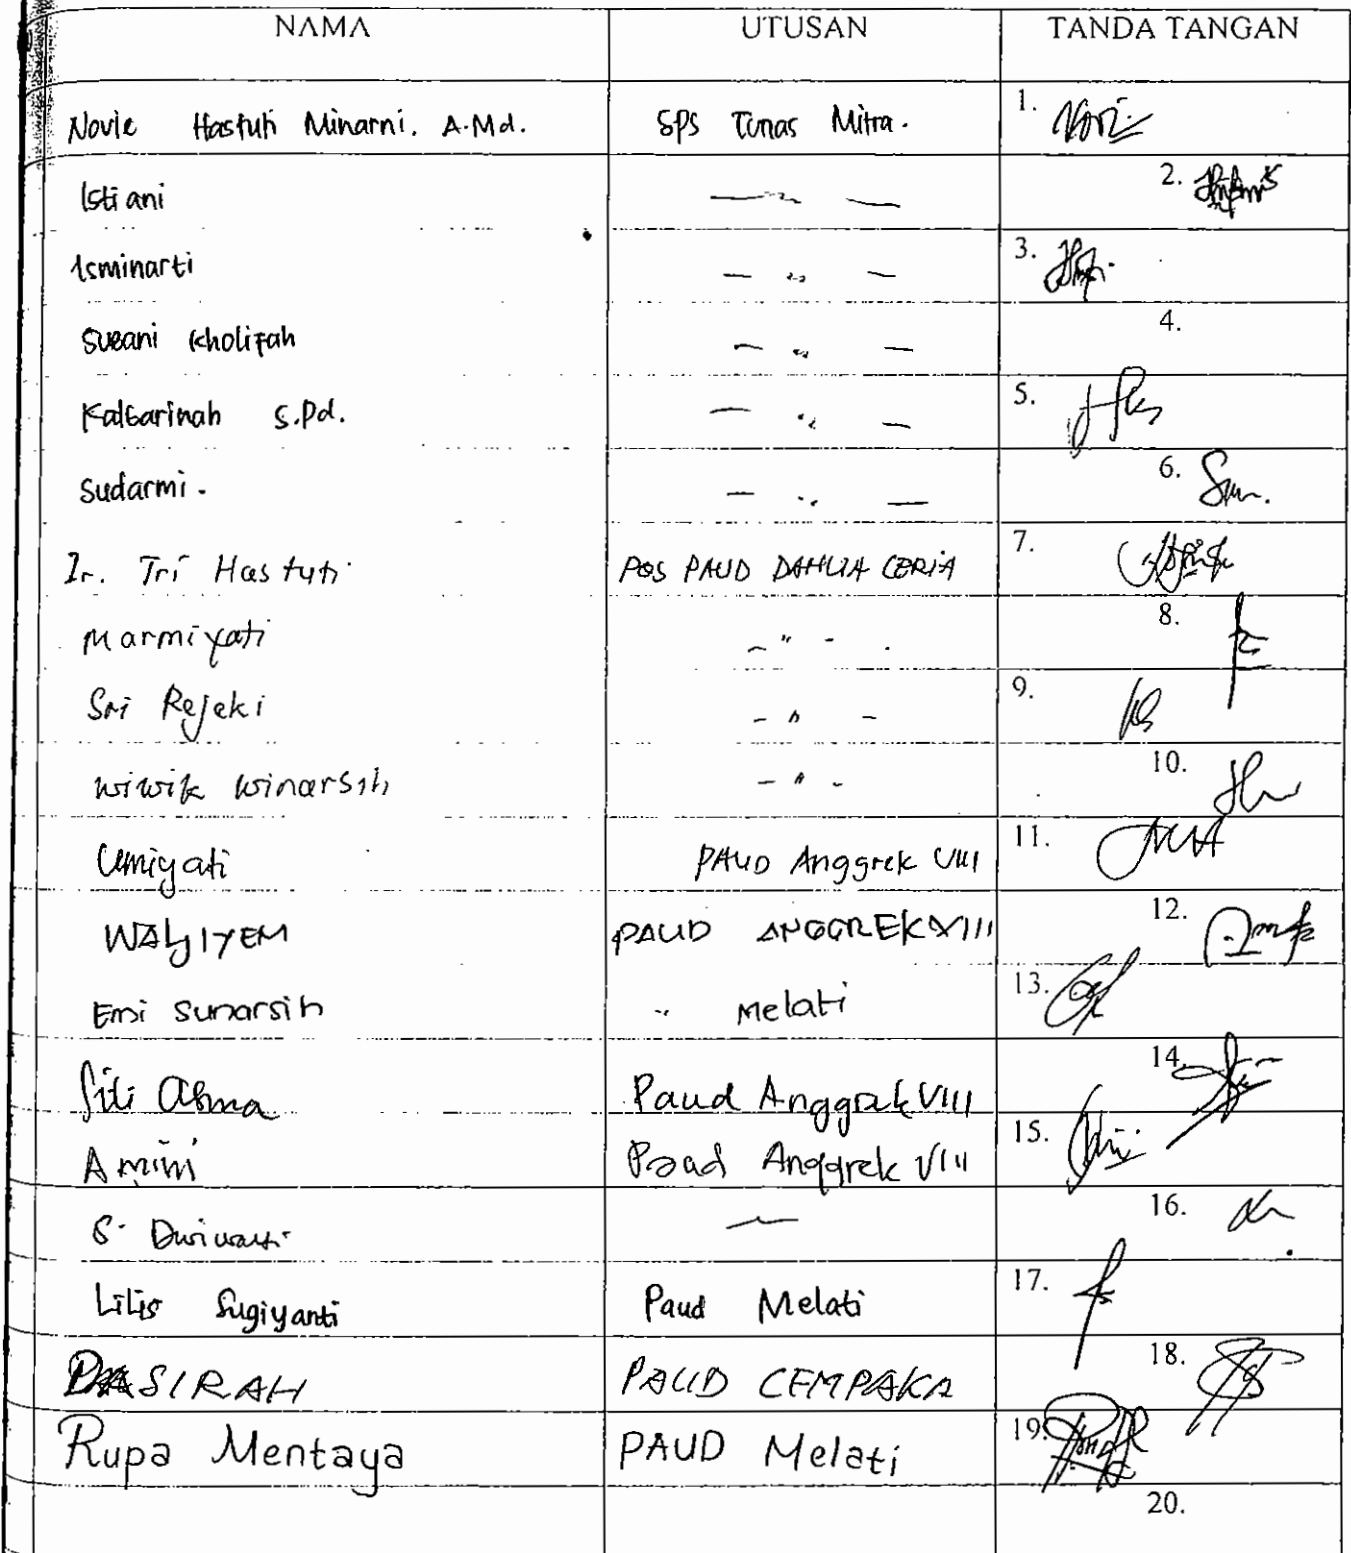 NAMA UTUSAN TANDA TANGAN
Novie Hastuti Minarni. A.Md. SPS Tunas Mitra. 1.
Istiani — " — 2.
Isminarti — " — 3.
Kholifah — " — 4.
Kalbarinah S.Pd. — " — 5.
Sudarmi. — " — 6.
Ir. Tri Hastuti POS PAUD DAHLIA CERIA 7.
Marmiyati - " - 8.
Sri Rejeki - " - 9.
Wiwik Winarsih - " - 10.
Umiyati PAUD Anggrek VIII 11.
WALJIYEM PAUD ANGGREK XIII 12.
Emi Sunarsih " Melati 13.
Siti Asma Paud Anggrek VIII 14.
Amini Paud Anggrek VIII 15.
S. Dwiwarti 16.
Lilis Sugiyanti Paud Melati 17.
DASIRAH PAUD CEMPAKA 18.
Rupa Mentaya PAUD Melati 19.
20.